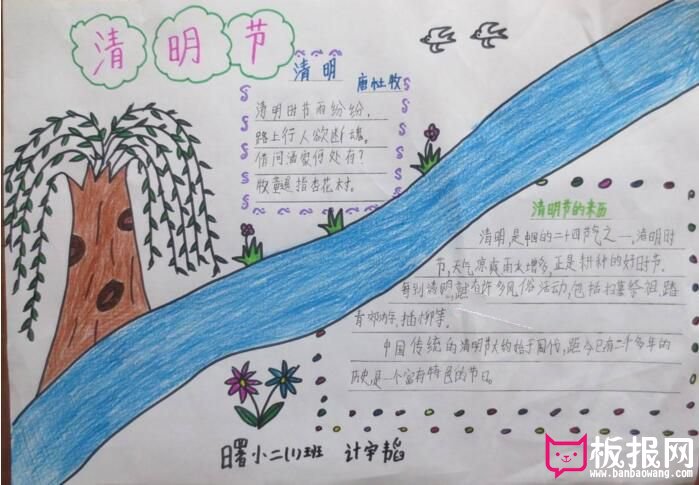 清明节
清明 唐杜牧
清明时节雨纷纷，
路上行人欲断魂。
借问酒家何处有？
牧童遥指杏花村。
清明节的来历
清明，是中国的二十四节气之一。清明时
节，天气凉爽雨水增多，正是耕种的好时节。
每到清明，就有许多风俗活动，包括扫墓祭祖、踏
青郊游、插柳等。
中国传统的清明节大约始于周代，距今已有二千多年的
历史，是一个富有特色的节日。
曙小二(1)班 计宇韬
板报网
www.banbaowang.com